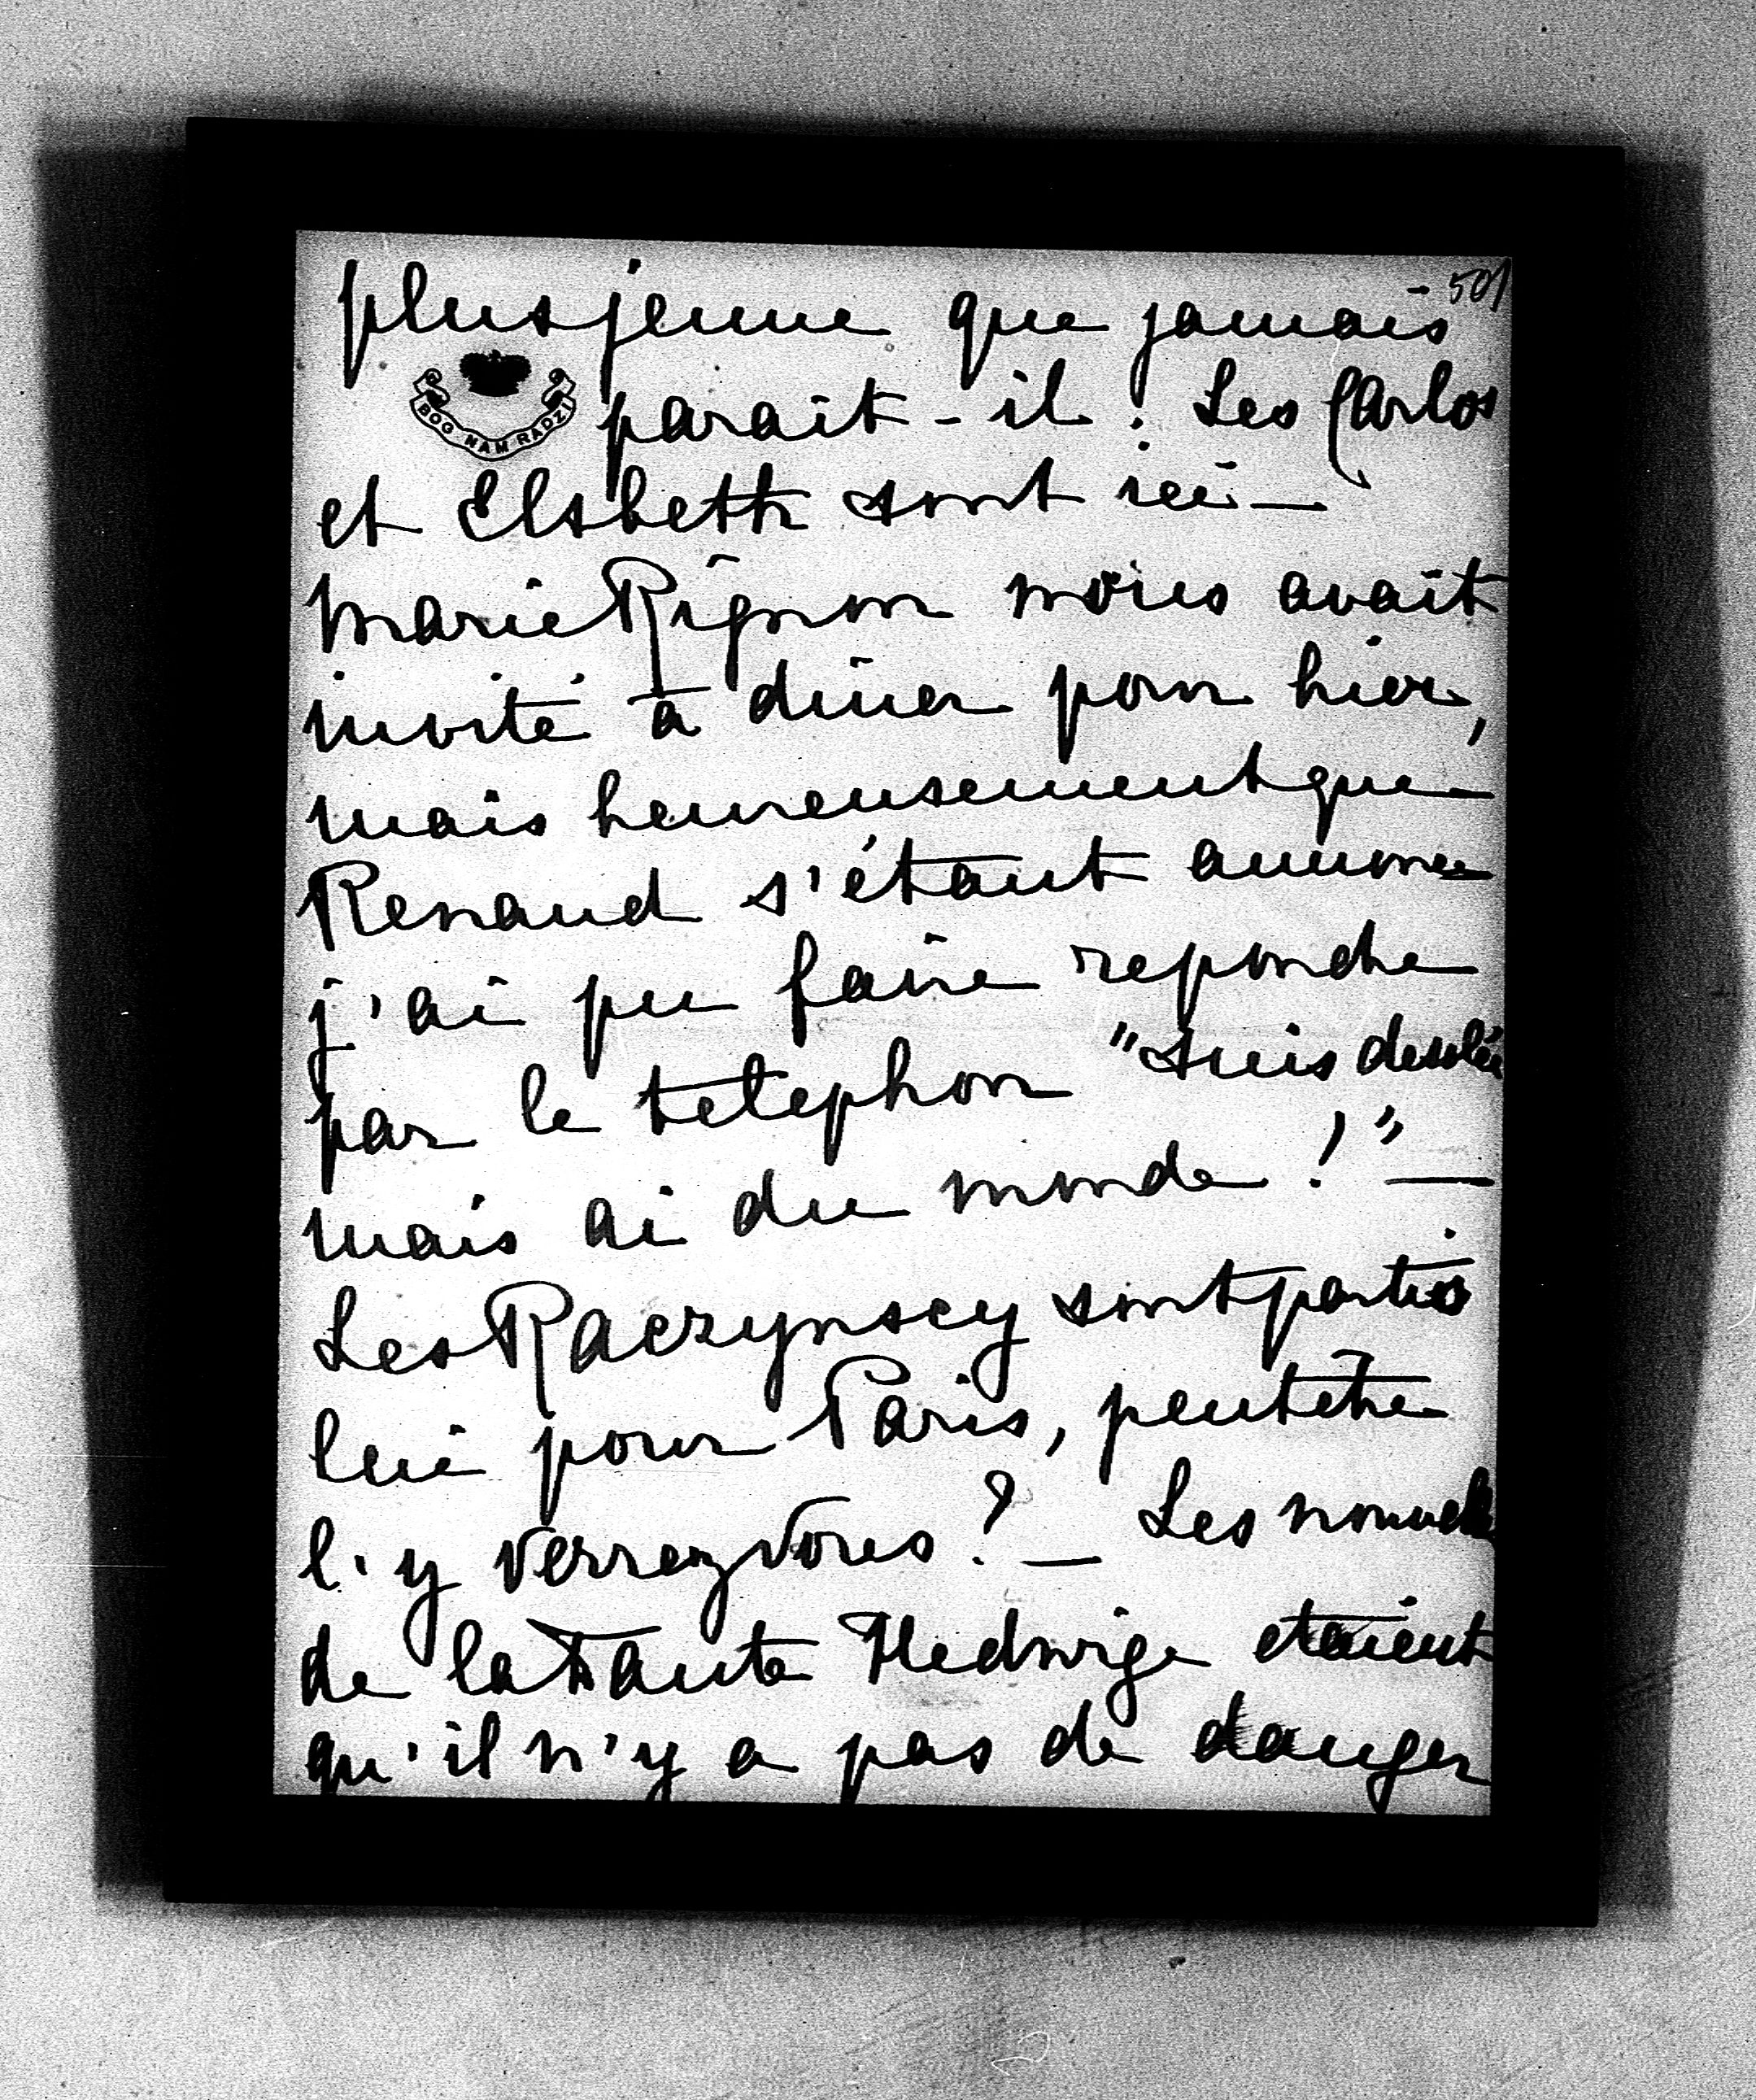 501
plus jeune que jamais
BOG NAM RADZI
parait-il. Les Carlos
et Elsbeth sont ici —
Marie Rignon nous avait
invité à diner pour hier,
mais heureusement que
Renaud s'étant annoncé
j'ai pu faire repondre
par le telephon "suis desolée
mais ai du monde!" —
Les Raczynscy sont partis
lui pour Paris, peutêtre
l'y verrez vous? — Les nouvelles
de la Tante Hedwige etaient
qu'il n'y a pas de danger